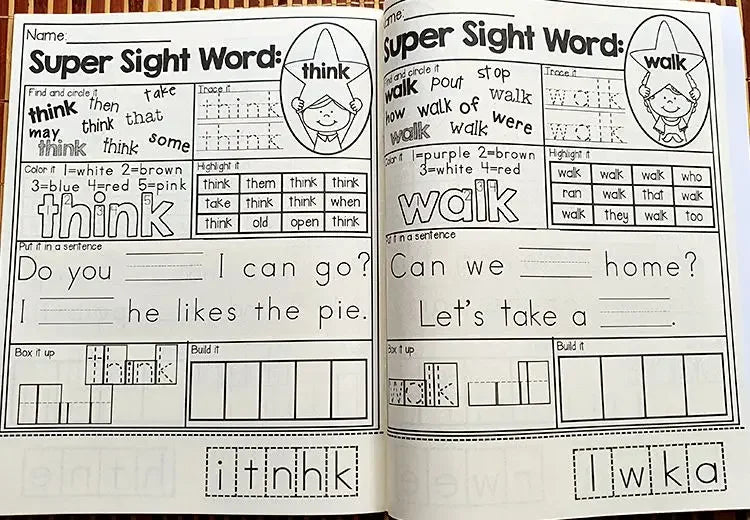 Name:
Super Sight Word:
think
Find and circle it
take
think then
may think that
think think some
Trace it
think
think
Color it 1=white 2=brown
3=blue 4=red 5=pink
think
Highlight it
think them think think
take think think when
think old open think
Put it in a sentence
Do you I can go?
I he likes the pie.
Box it up
think
Build it
i t n h k
ame:
Super Sight Word:
walk
Find and circle it
stop
walk pout walk
how walk of
walk walk were
Trace it
walk
walk
Color it 1=purple 2=brown
3=white 4=red
walk
Highlight it
walk walk walk who
ran walk that walk
walk they walk too
Put it in a sentence
Can we home?
Let's take a .
Box it up
walk
Build it
l w k a